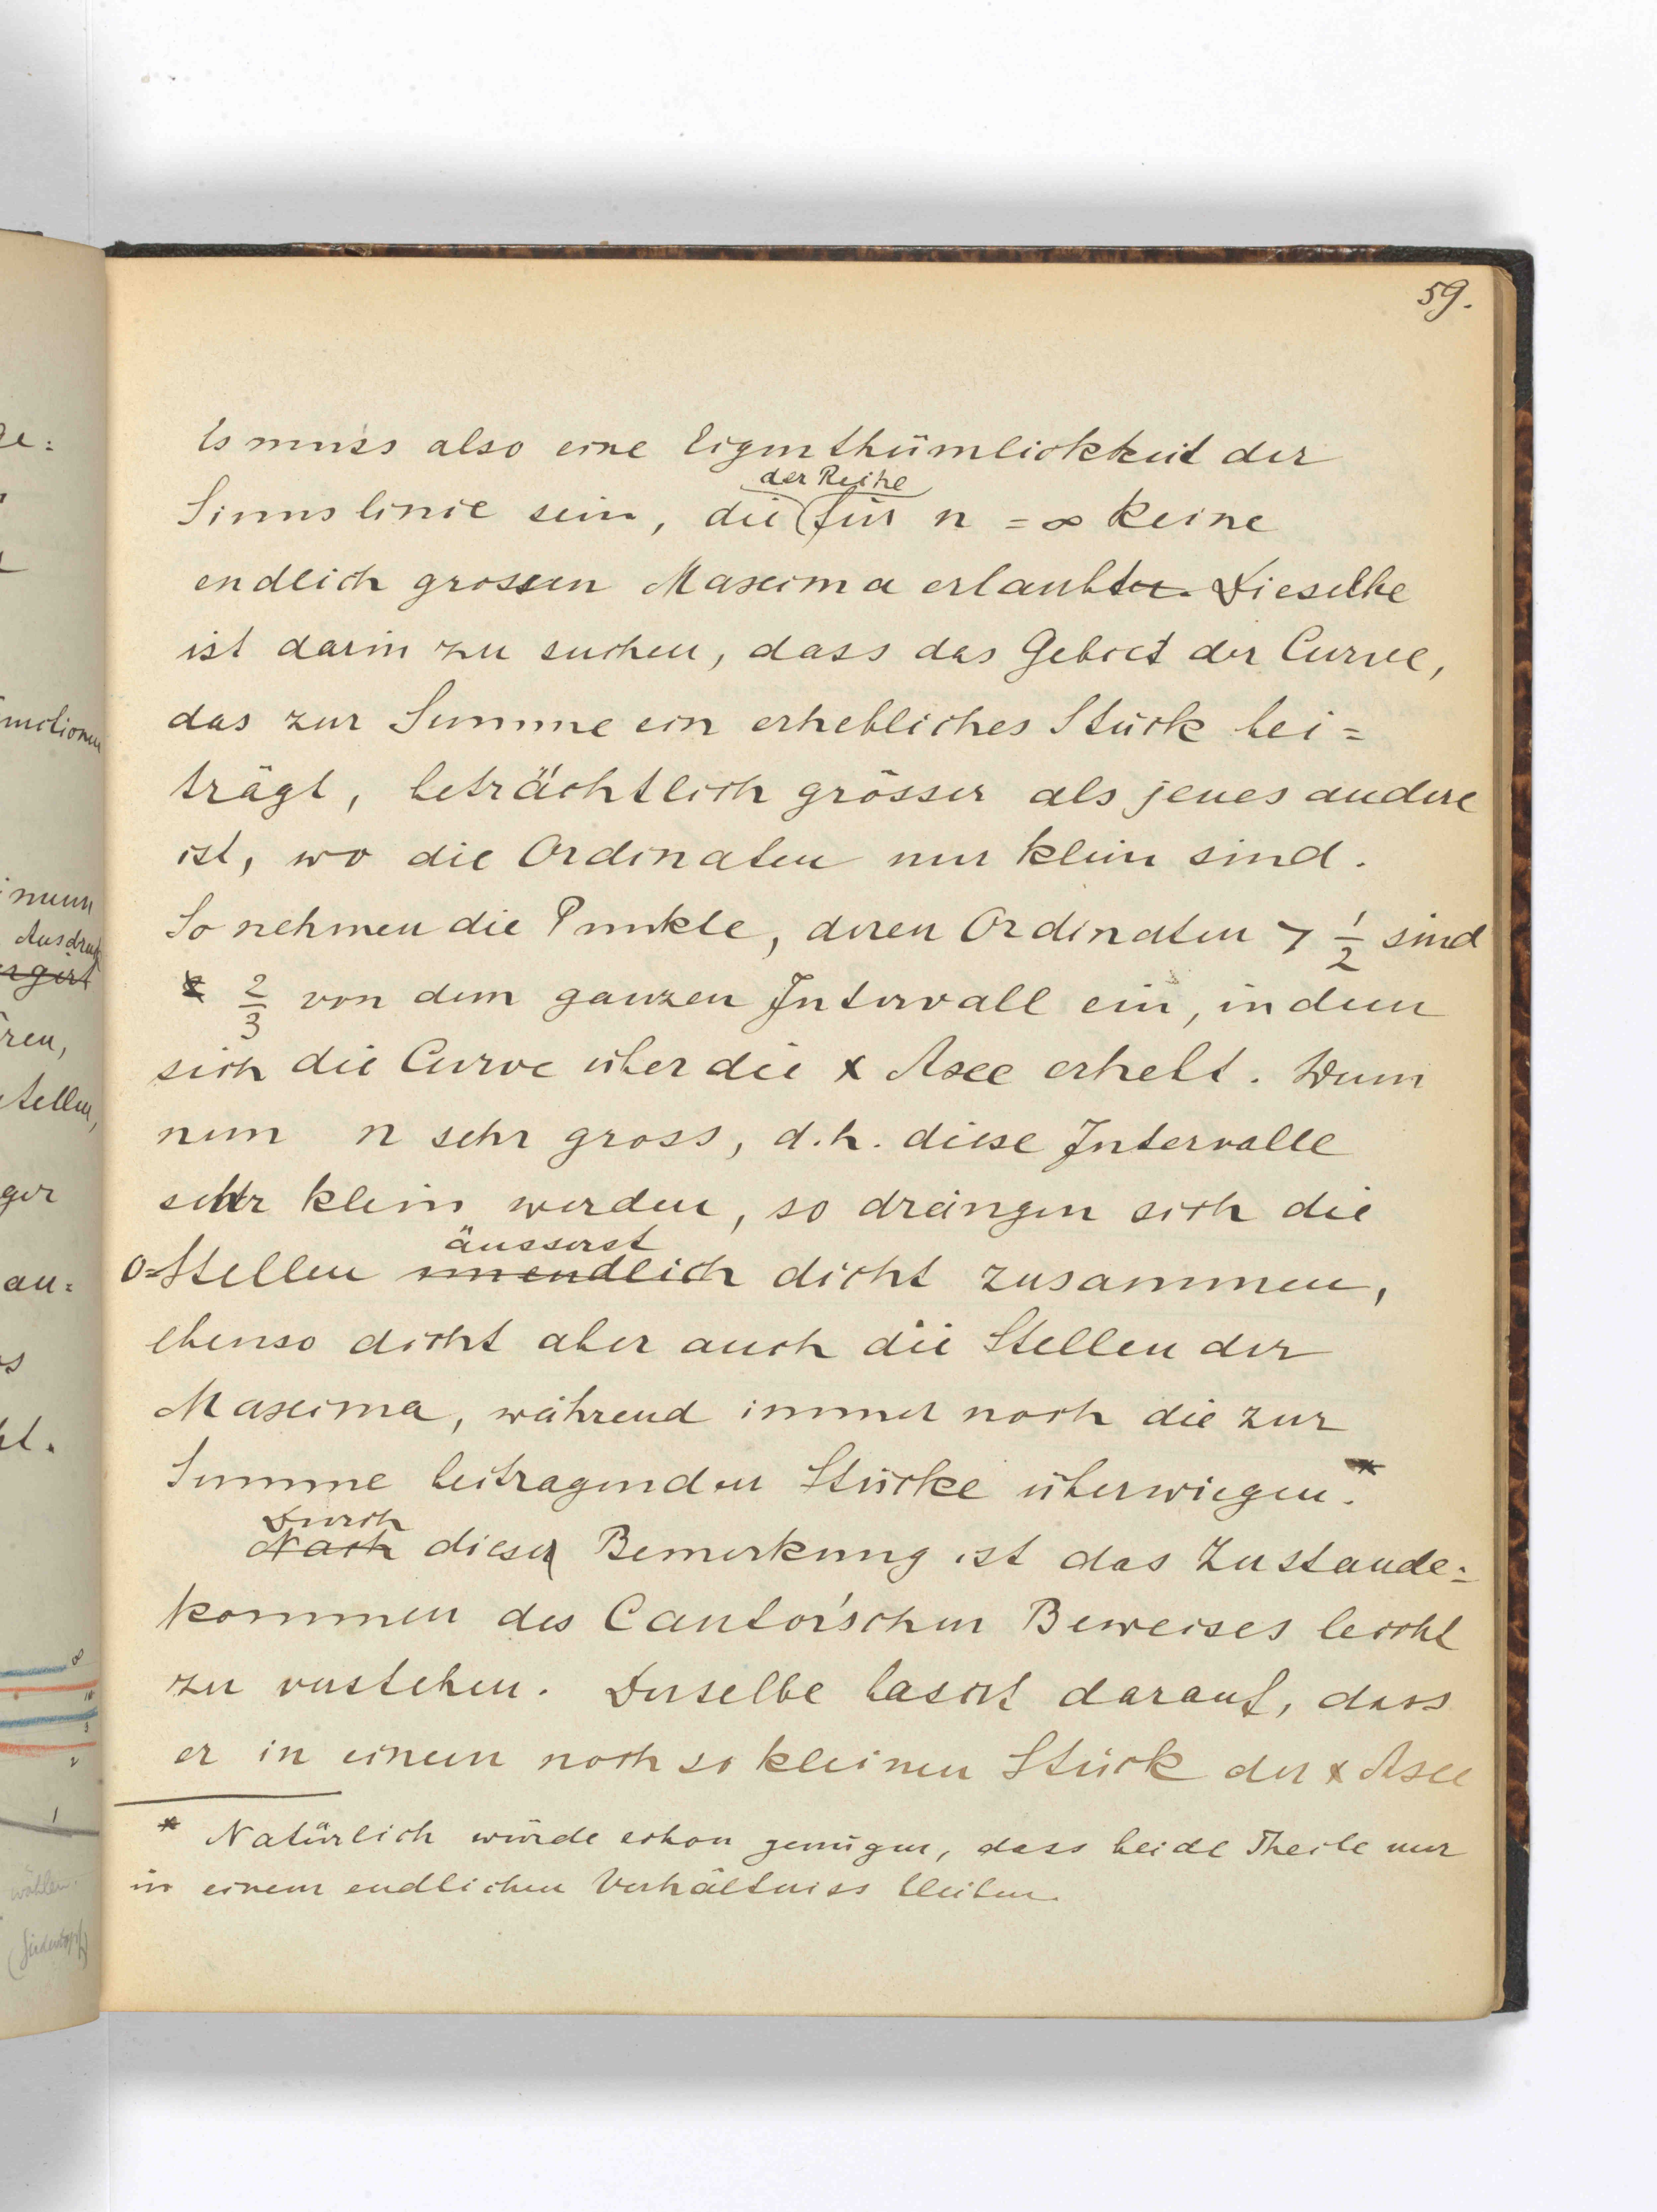 59.
Es muss also eine Eigenthümlichkeit der
der Reihe
Sinuslinie sein, die für n = ∞ keine
endlich grossen Maxima erlaubte. Dieselbe
ist darin zu suchen, dass das Gebiet der Curve,
das zur Summe ein erhebliches Stück bei=
trägt, beträchtlich grösser als jenes andere
ist, wo die Ordinaten nur klein sind.
So nehmen die Punkte, deren Ordinaten > 1/2 sind
2/3 von dem ganzen Intervall ein, in dem
sich die Curve über die x Axe erhebt. Wenn
nun n sehr gross, d.h. diese Intervalle
sehr klein werden, so drängen sich die
äusserst
0=Stellen unendlich dicht zusammen,
ebenso dicht aber auch die Stellen der
Maxima, während immer noch die zur
Summe beitragenden Stücke überwiegen.*
Durch
Nach diese Bemerkung ist das Zustande=
kommen des Cantor'schen Beweises leicht
zu verstehen. Derselbe basirt darauf, dass
er in einem noch so kleinen Stück der x Axe
* Natürlich würde schon genügen, dass beide Theile nur
in einem endlichen Verhältniss bleiben.